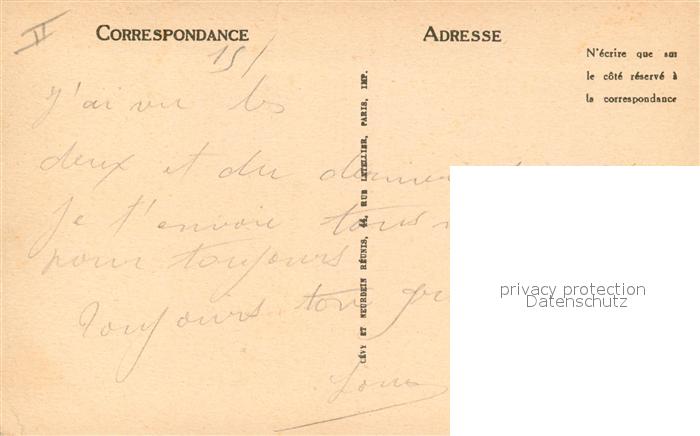 II
CORRESPONDANCE
ADRESSE
N'écrire que sur
le côté réservé à
la correspondance
15/
J'ai vu les
deux et du dernier
Je t'envoie tous
pour toujours
Toujours ton
Louis
LÉVY ET NEURDEIN RÉUNIS, 44, RUE LETELLIER, PARIS, IMP.
privacy protection
Datenschutz